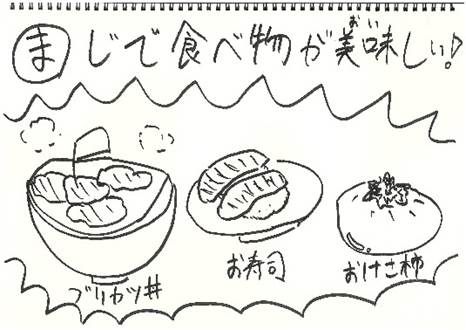 まじで食べ物が美味しい♪
おい
ブリカツ丼
お寿司
おけさ柿